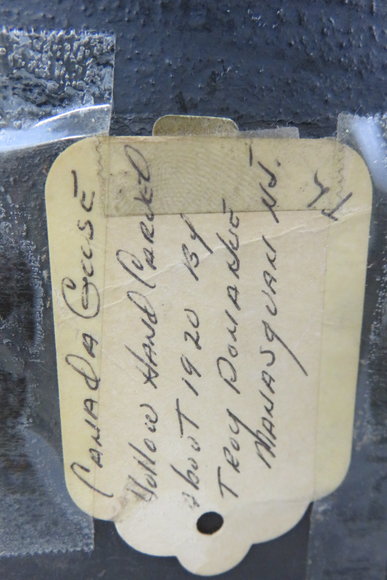 CANADA GOOSE
Hollow HAND CARVED
About 1920 BY
TROY DOMANUE
MANASQUAN NJ.